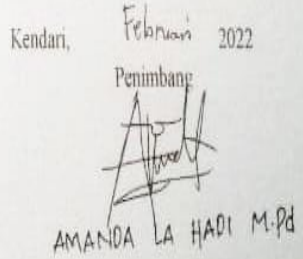 Kendari, Februari 2022
Penimbang
AMANDA LA HADI M.Pd